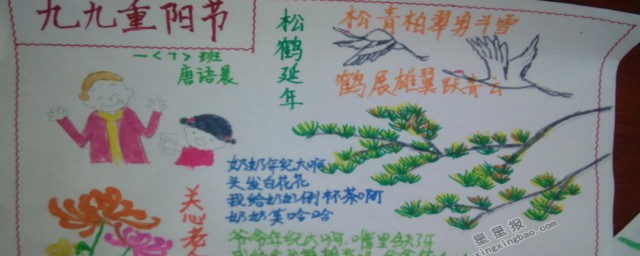 九九重阳节
一〈7〉班
唐语晨
松鹤延年
松青柏翠勇斗雪
鹤展雄翼跃青云
奶奶年纪大啊
头发白花花
我给奶奶倒杯茶啊
奶奶笑哈哈
关心老
爷爷年纪大啊 嘴里缺了牙
星星报
xingxingbao.com